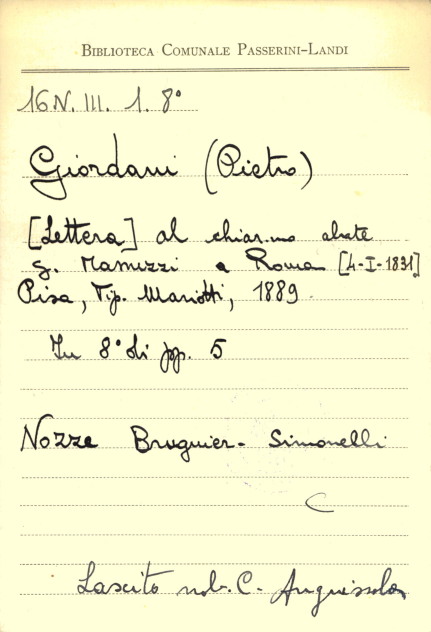 BIBLIOTECA COMUNALE PASSERINI-LANDI
16N. III. 1. 8°
Giordani (Pietro)
[Lettera] al chiar.mo abate
G. Manuzzi a Roma [4-I-1831]
Pisa, Tip. Mariotti, 1889.
In 8° di pp. 5
Nozze Bruguier-Simonelli
C
Lascito nob. C. Anguissola